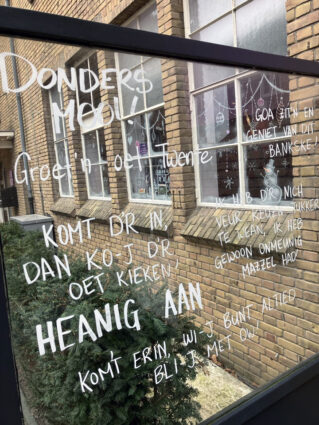 DONDERS
MOOI!
Groet'n oet Twente
KOMT D'R IN
DAN KO-J D'R
OET KIEKEN!
HEANIG AAN
KOMT ERIN, WI-J BUNT ALTIED
BLI-J MET OW!
GOA ZITN EN
GENIET VAN DIT
BANKSKE!
IK HEB D'R NICH
VEUR
TE
IK HEB
GEWOON ONMEUNIG
MAZZEL HAD